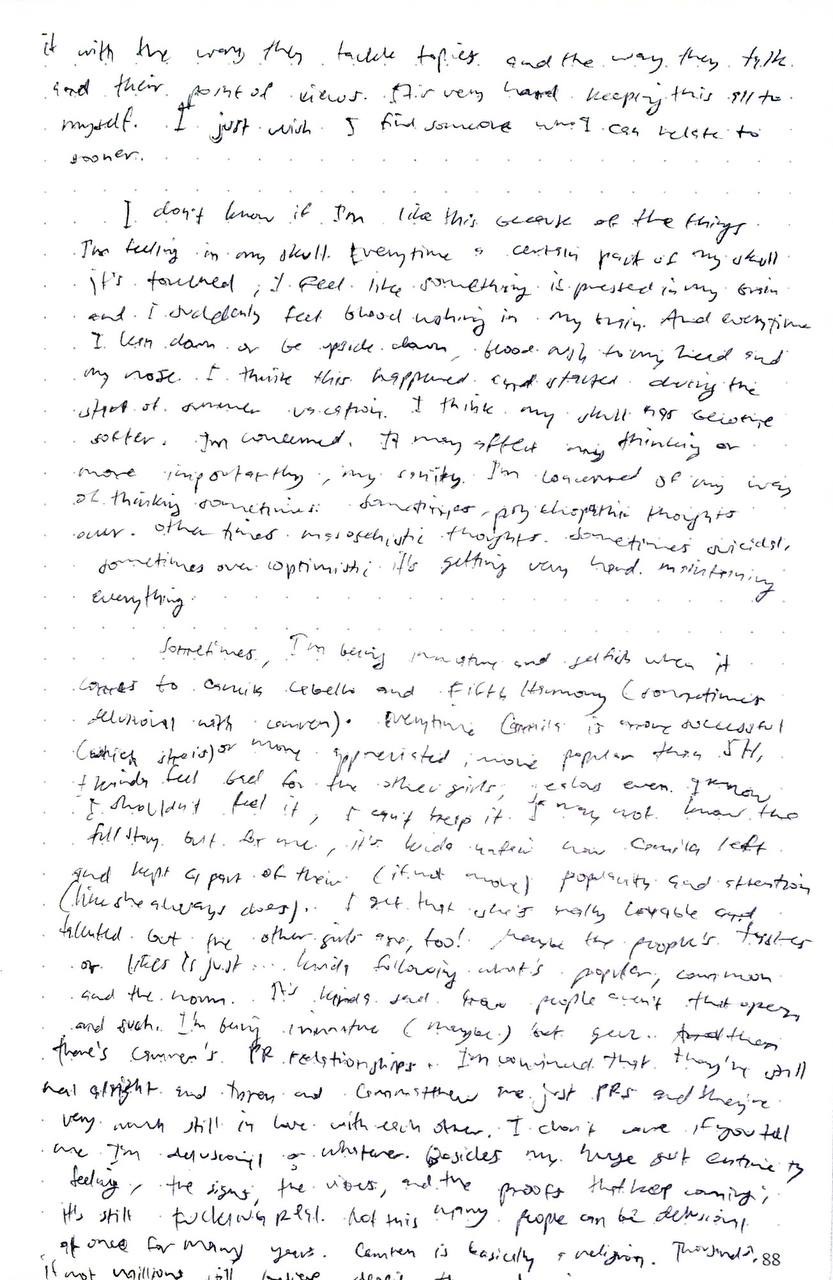 it with the way they tackle topics and the way they talk
and their point of views. It's very hard keeping this all to
myself. I just wish I find someone who I can relate to
sooner.
I don't know if I'm like this because of the things
I'm feeling in my skull. Everytime a certain part of my skull
it's touched, I feel like something is pressed in my brain
and I suddenly feel blood rushing in my brain. And everytime
I lean down or be upside down, blood rush to my head and
my nose. I think this happened and started during the
start of summer vacation. I think my skull has become
softer. I'm concerned. It may affect my thinking or
more importantly, my sanity. I'm concerned of my way
of thinking sometimes. Sometimes, psychopathic thoughts
over. other times masochistic thoughts. Sometimes suicidal,
sometimes over optimistic it's getting very hard maintaining
everything.
Sometimes, I'm being immature and selfish when it
comes to Camila Cabello and Fifth Harmony (sometimes
delusional with camren). Everytime Camila is more successful
(which she is) or more appreciated, more popular than 5H,
I kinda feel bad for the other girls, jealous even. I know
I shouldn't feel it, I can't keep it. I may not know the
full story but for me, it's kinda unfair how Camila left
and kept a part of their (if not more) popularity and attention
(like she always does). I get that she's really lovable and
talented but the other girls are, too! Maybe the people's tastes
or likes is just... kinda following what's popular, common
and the norm. It's kinda sad how people aren't that open
and such. I'm being immature (maybe) but geez. And then
there's camren's PR relationships. I'm convinced that they're still
real alright and and are just PRs and they're
very much still in love with each other. I don't care if you tell
me I'm delusional or whatever. Besides my huge gut
feeling, the signs, the vibes, and the proofs that keep coming,
it's still fucking real. Not this many people can be delusional
at once for many years. Camren is basically a religion. Thousands, 88
if not millions still believe